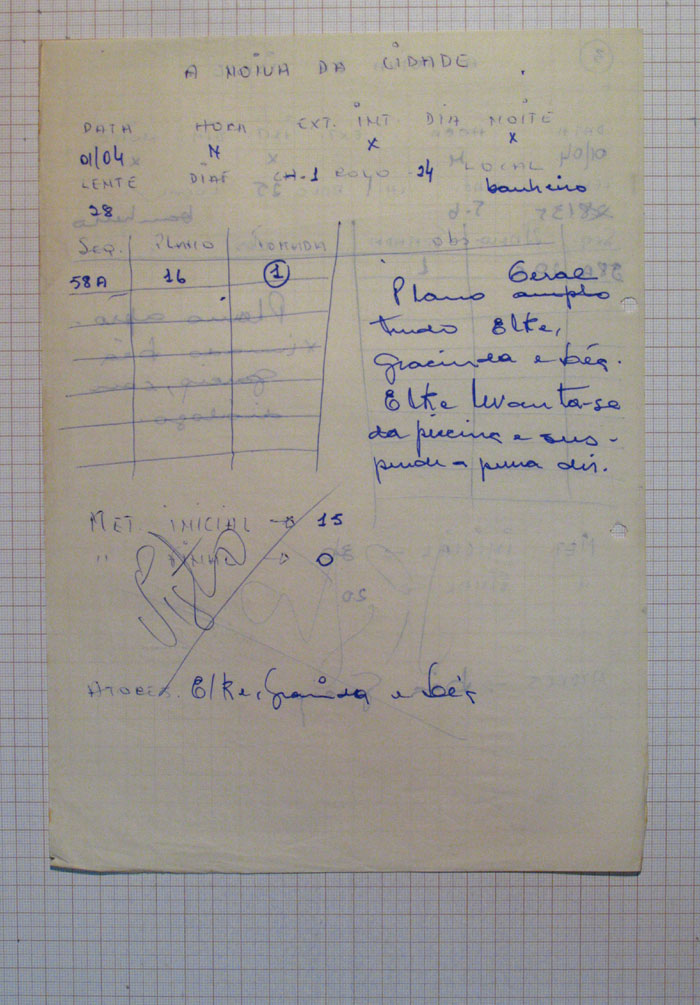 A NOIVA DA CIDADE
DATA HORA EXT. INT. DIA NOITE
01/04 N X X
LENTE DIAF CH-1 ROLO - 24 LOCAL
28 banheiro
SEQ. PLANO TOMADA
58A 16 1
Geral
Plano amplo
tudo Elke,
Gracinda e Béa.
Elke levanta-se
da piscina e sus-
pende a perna dir.
MET. INICIAL → 15
" FINAL → 0
ATORES. Elke, Gracinda e Béa